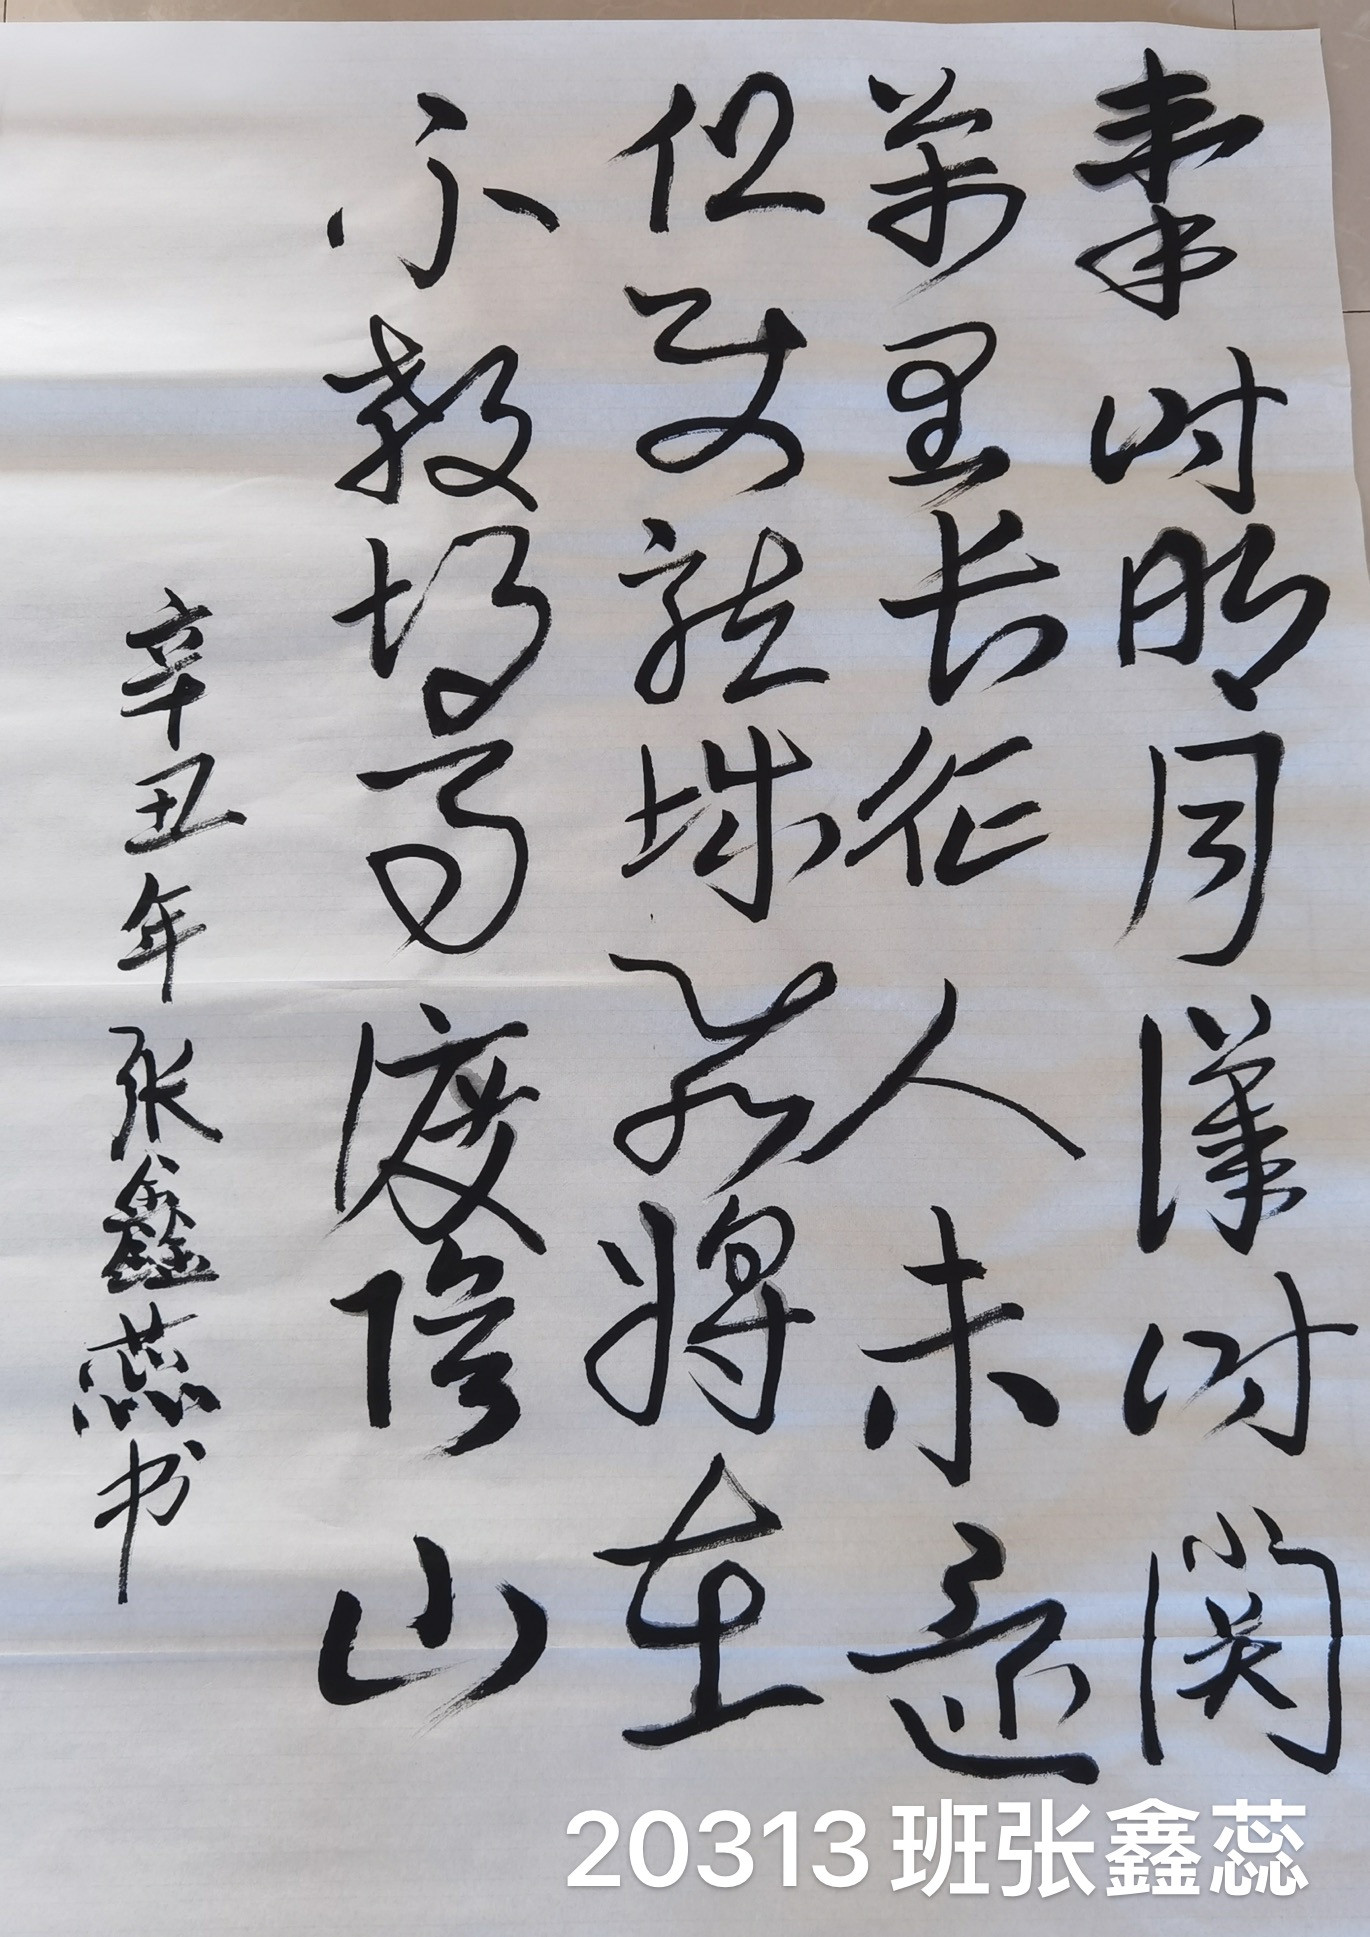 秦时明月漢时関
萬里长征人未还
但使龍城飛将在
不教胡馬度陰山
辛丑年张鑫蕊书
20313班张鑫蕊